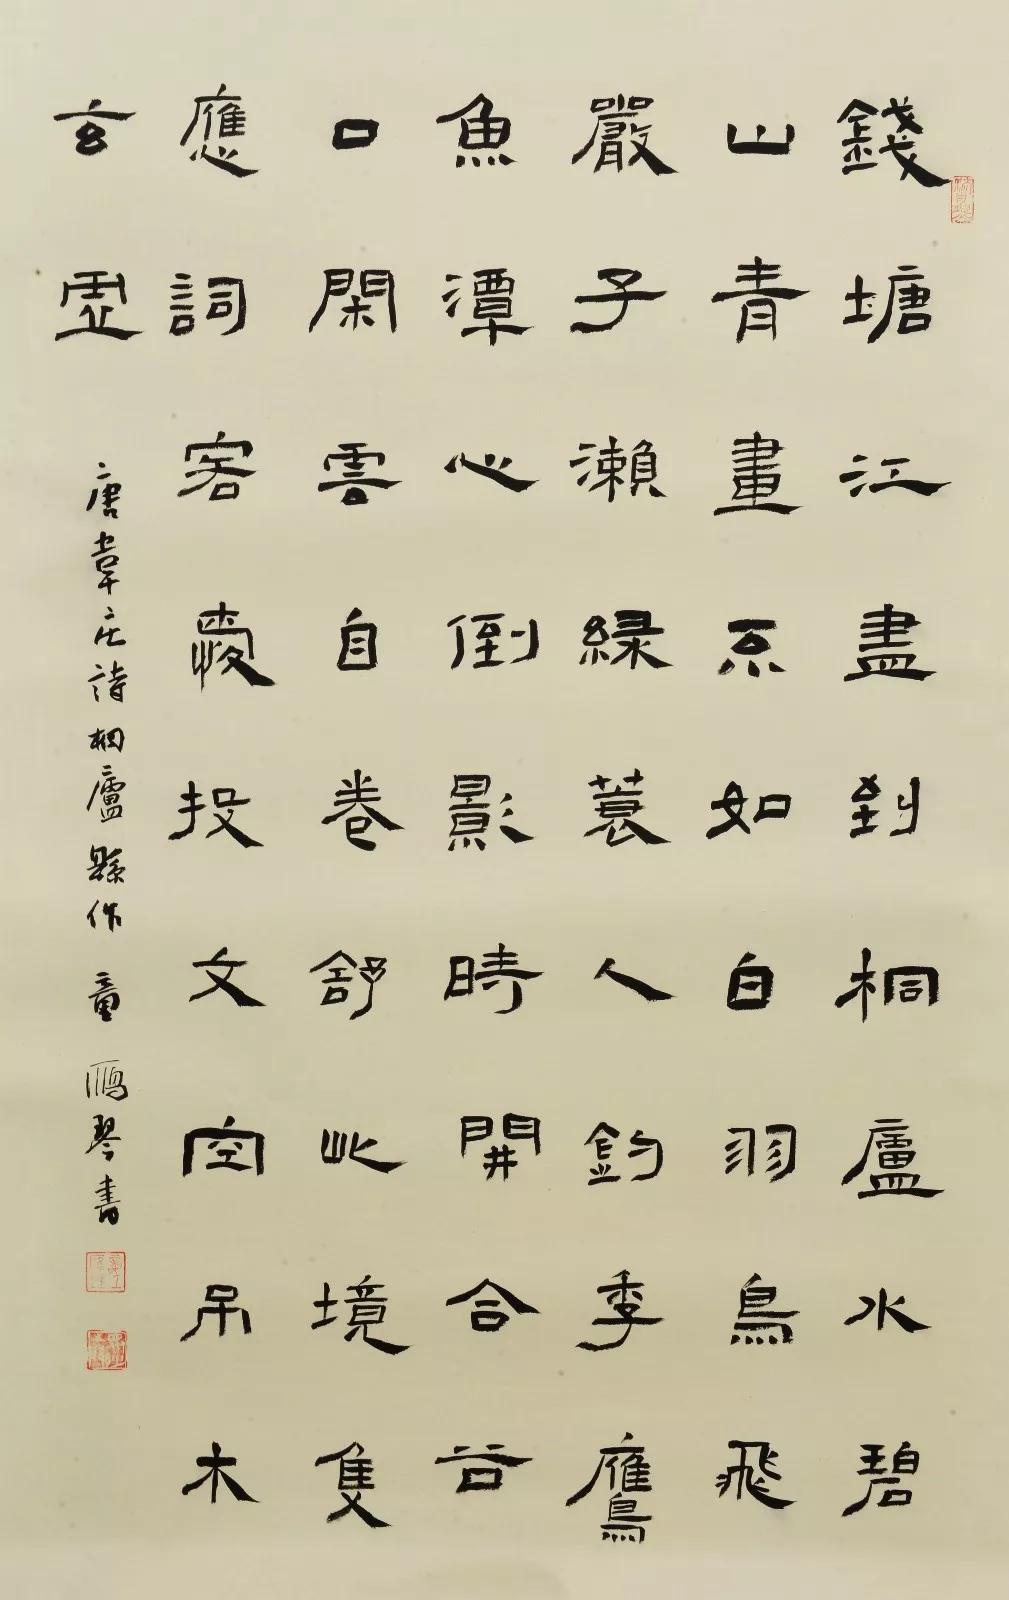 錢塘江盡到桐廬水碧
山青畫不如白羽鳥飛
嚴子瀨綠蓑人釣季鷹
魚潭心倒影時開合谷
口閑雲自卷舒此境隻
應詞客愛投文空吊木
玄虛
唐韋庄詩桐廬縣作 童琴書